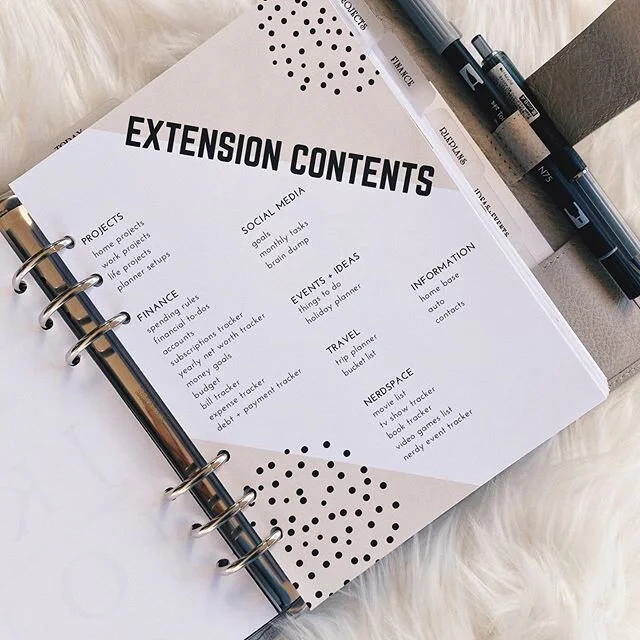 EXTENSION CONTENTS
PROJECTS
home projects
work projects
life projects
planner setups
FINANCE
spending rules
financial to-dos
accounts
subscriptions tracker
yearly net worth tracker
money goals
budget
bill tracker
expense tracker
debt + payment tracker
SOCIAL MEDIA
goals
monthly tasks
brain dump
EVENTS + IDEAS
things to do
holiday planner
TRAVEL
trip planner
bucket list
NERDSPACE
movie list
tv show tracker
book tracker
video games list
nerdy event tracker
INFORMATION
home base
auto
contacts
PROJECTS
FINANCE
TODAY
N75